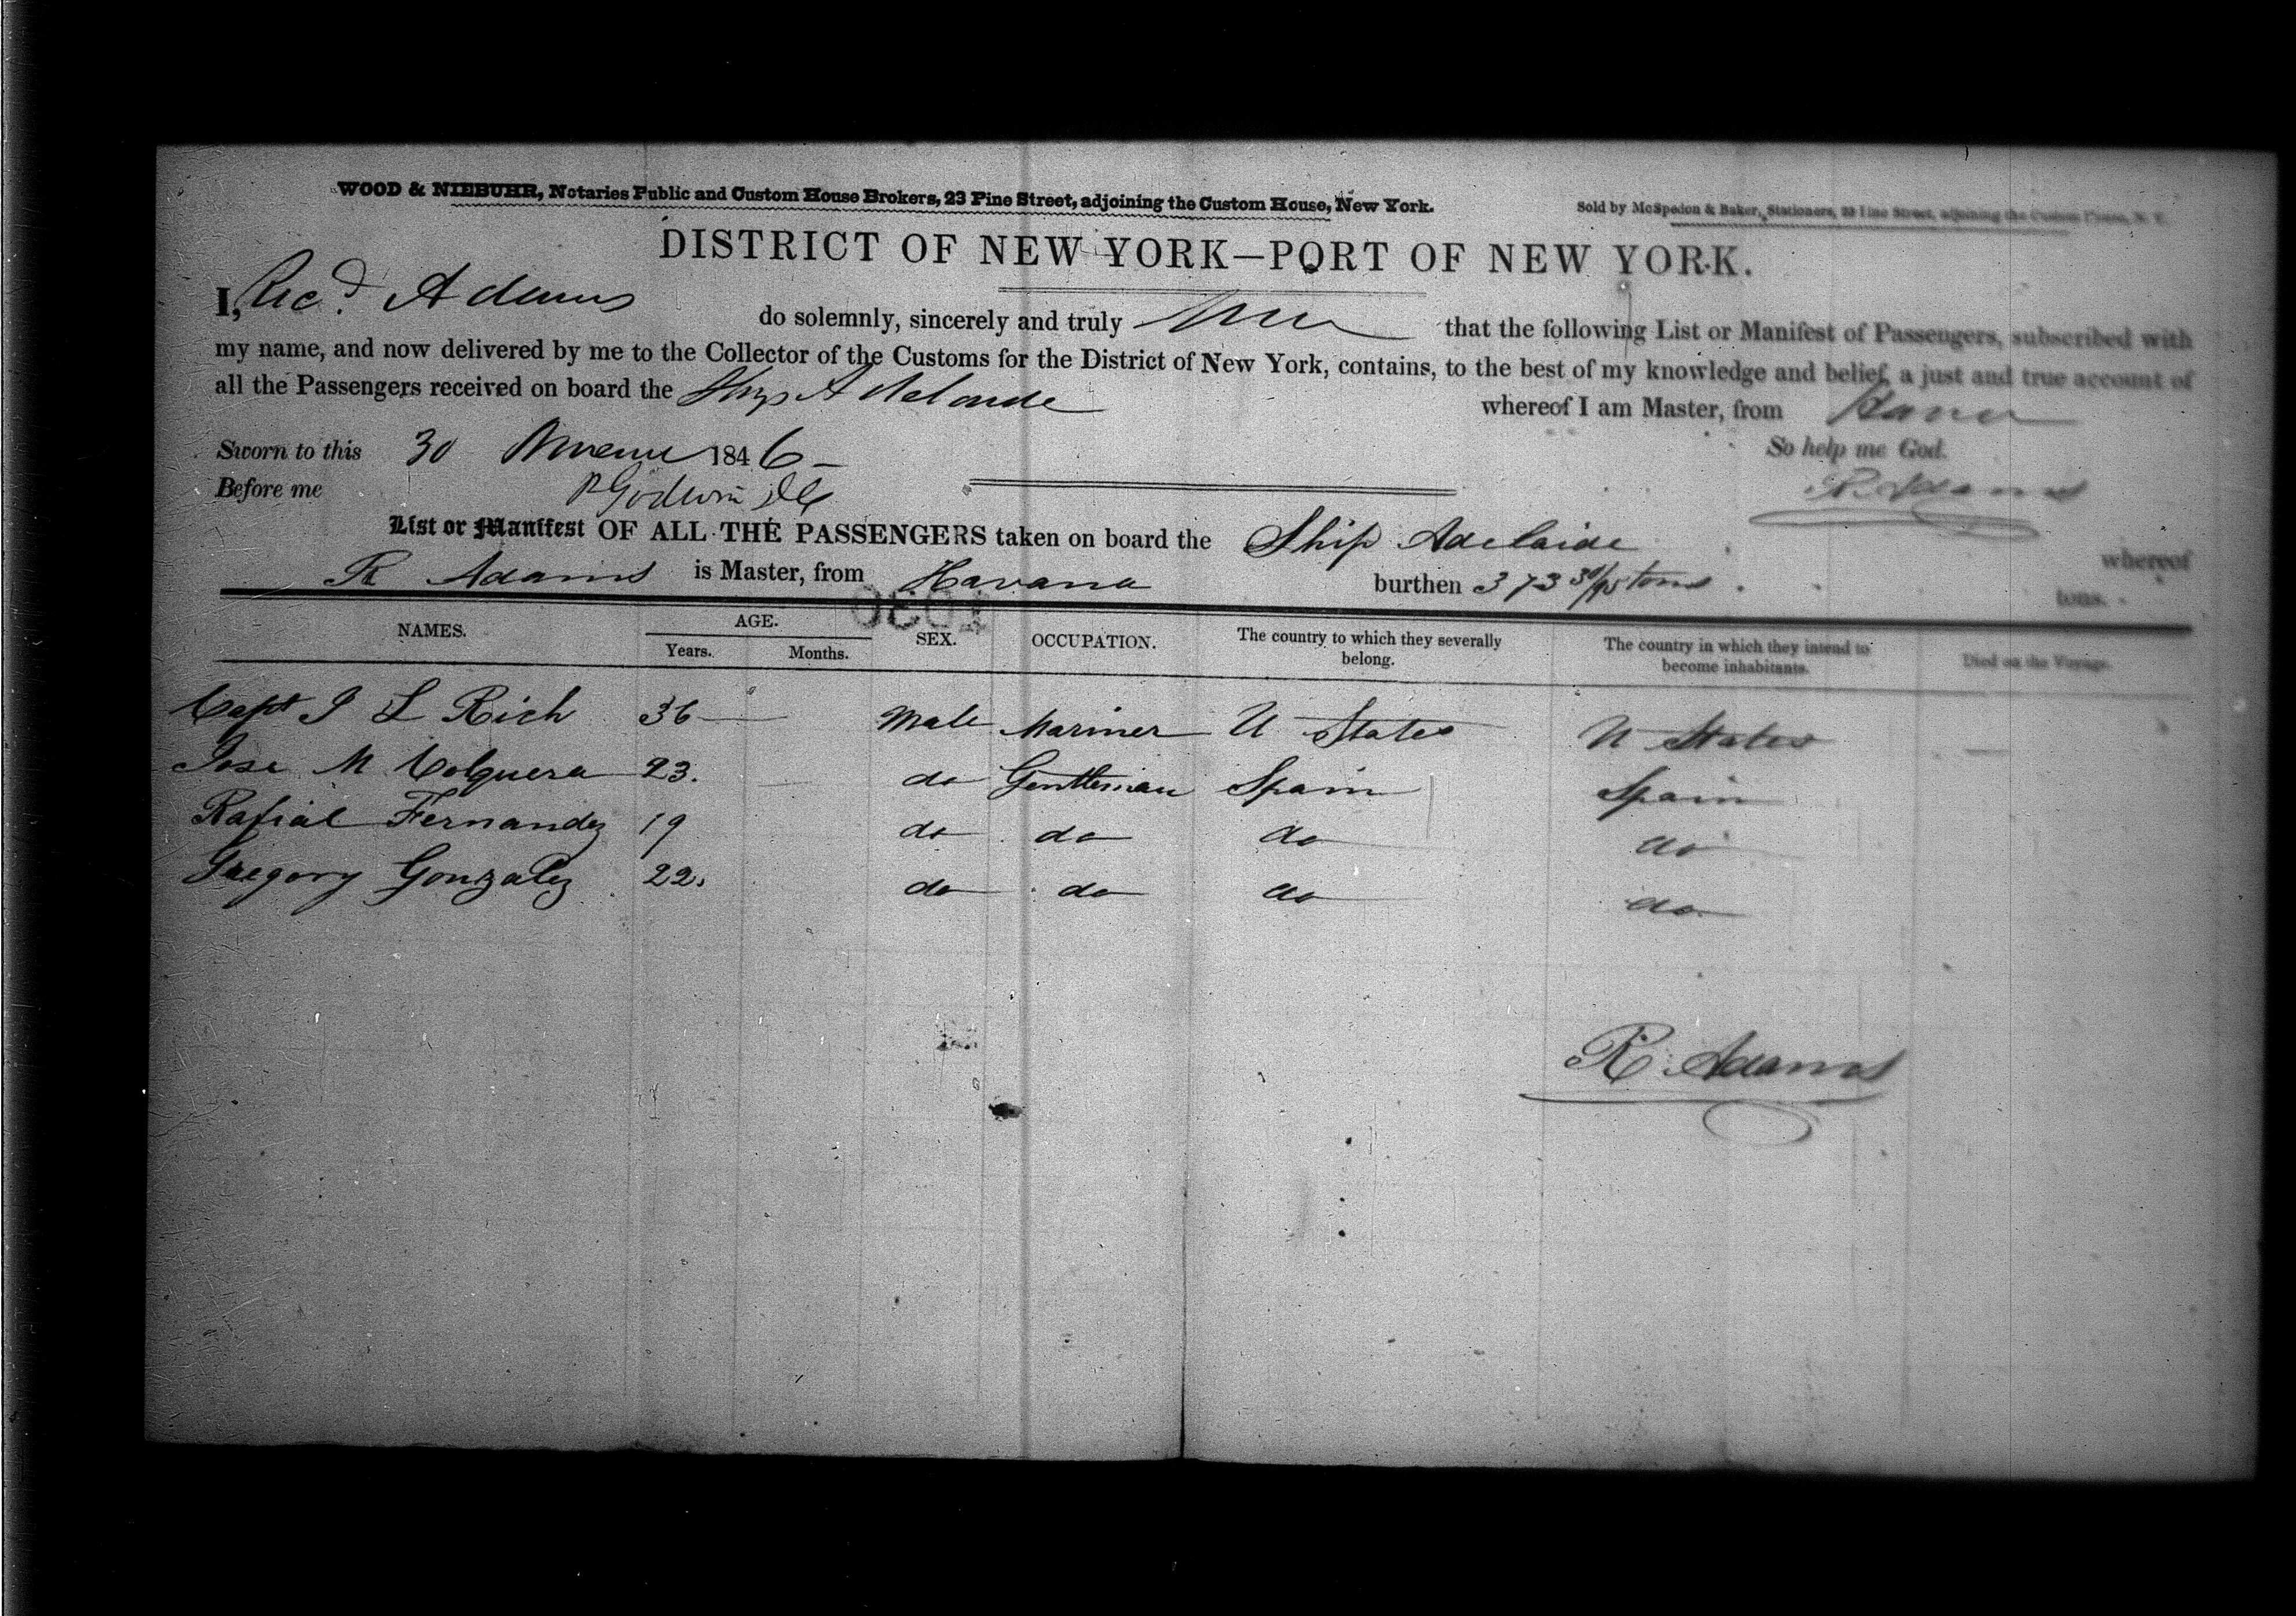 WOOD & NIEBUHR, Notaries Public and Custom House Brokers, 23 Pine Street, adjoining the Custom House, New York.
Sold by McSpedon & Baker, Stationers, 23 Pine Street, adjoining the Custom House, N. Y.
DISTRICT OF NEW YORK—PORT OF NEW YORK.
I, Ricd Adams do solemnly, sincerely and truly that the following List or Manifest of Passengers, subscribed with
my name, and now delivered by me to the Collector of the Customs for the District of New York, contains, to the best of my knowledge and belief, a just and true account of
all the Passengers received on board the Ship Adelaide whereof I am Master, from Havana
Sworn to this 30 1846 So help me God.
Before me R Adams
List or Manifest OF ALL THE PASSENGERS taken on board the Ship Adelaide whereof
R Adams is Master, from Havana burthen 373 30/95 tons. tons.
NAMES. AGE. SEX. OCCUPATION. The country to which they severally belong. The country in which they intend to become inhabitants. Died on the Voyage.
Years. Months.
Capt I L Rich 36 Male Mariner U States U States
Jose M 23. do Gentleman Spain Spain
Rafial Fernandez 19 do do do do
Gregory Gonzalez 22. do do do do
R. Adams